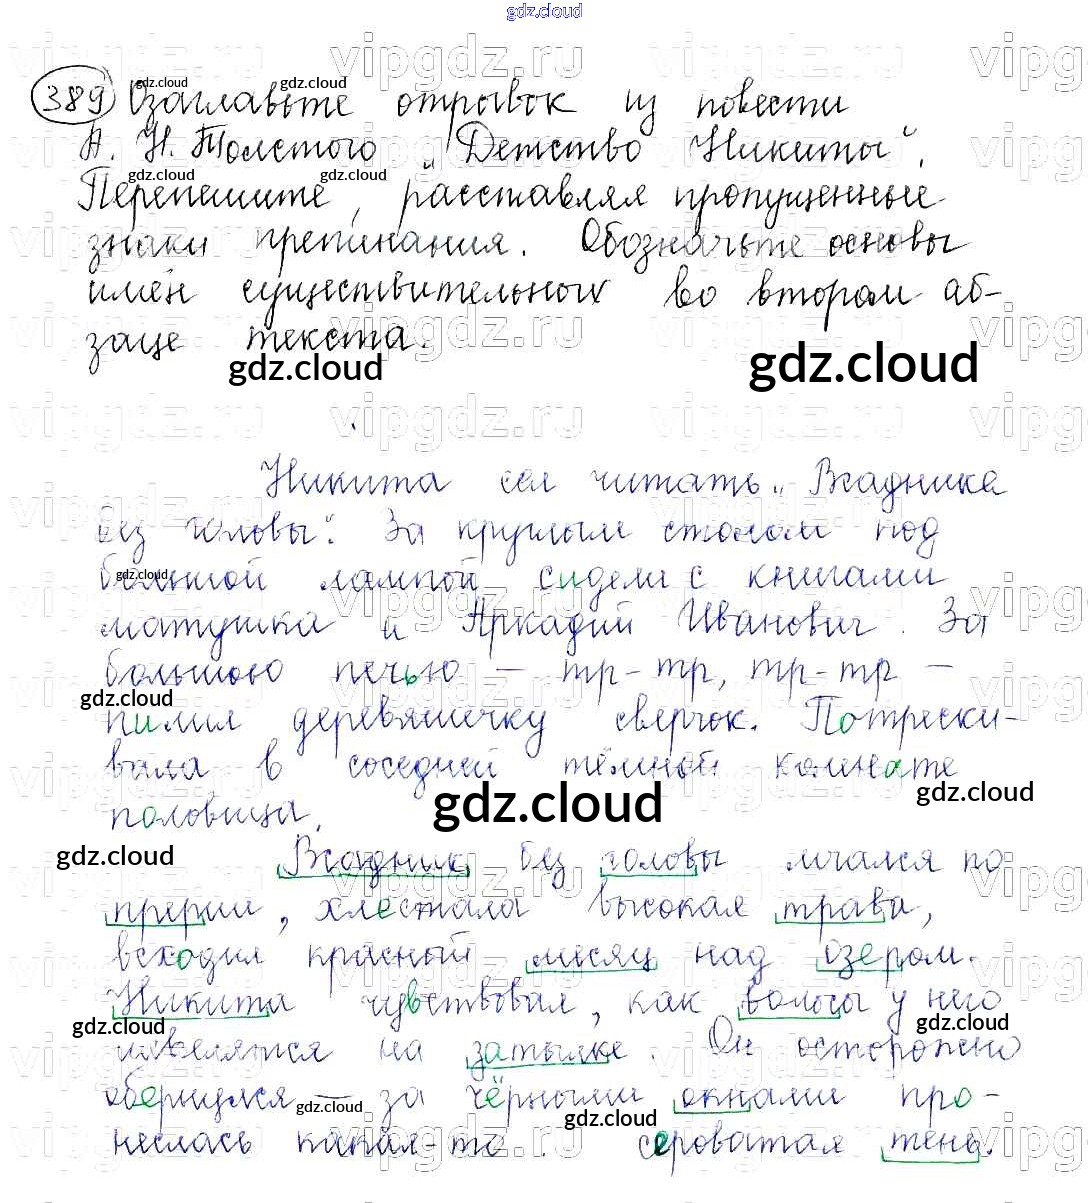 gdz.cloud
389 Озаглавьте отрывок из повести
А. Н. Толстого „Детство Никиты".
Перепешите, расставляя пропущенные
знаки препинания. Обозначьте основы
имён существительных во втором аб-
заце текста.
gdz.cloud gdz.cloud
Никита сел читать „Всадника
без головы". За круглым столом под
большой лампой сидели с книгами
матушка и Аркадий Иванович. За
большою печью – тр-тр, тр-тр –
пилил деревяшечку сверчок. Потрески-
вала в соседней тёмной комнате
половица.
Всадник без головы мчался по
прерии, хлестала высокая трава,
всходил красный месяц над озером.
Никита чувствовал, как волосы у него
шевелятся на затылке. Он осторожно
обернулся – за чёрными окнами про-
неслась какая-то сероватая тень.